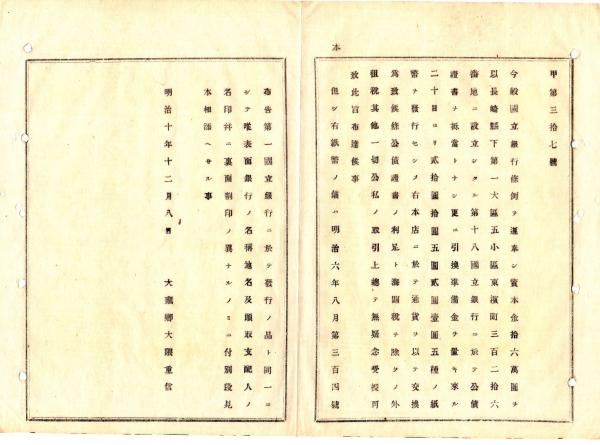 本
甲第三拾七號
今般國立銀行條例ヲ遵奉シ資本金拾六萬圓ヲ
以長崎縣下第一大區五小區東濱町三百二拾六
番地ニ設立シタル第十八國立銀行ニ於テ公債
證書ヲ抵當トナシ更ニ引換準備金ヲ置キ來ル
二十日ヨリ貳拾圓拾圓五圓貳圓壹圓五種ノ紙
幣ヲ發行セシメ右本店ニ於テ通貨ヲ以テ交換
爲致候條公債證書ノ利足ト海關稅ヲ除クノ外
租稅其他一切公私ノ取引上總テ無疑念受授可
致此旨布達候事
但シ右紙幣ノ儀ハ明治六年八月第三百四號
布告第一國立銀行ニ於テ發行ノ品ト同一ニ
シテ唯表面銀行ノ名稱地名及頭取支配人ノ
名印幷ニ裏面割印ノ異ナルノミニ付別段見
本相添ヘサル事
明治十年十二月八日
大藏卿大隈重信